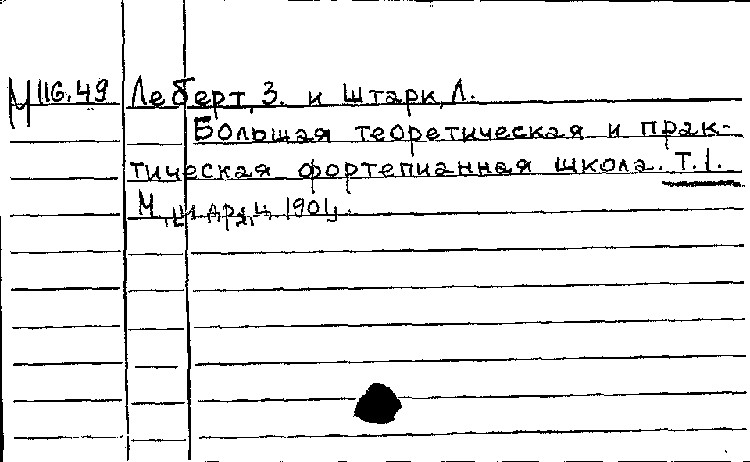 М 116.49 Леберт, З. и Штарк, Л.
Большая теоретическая и прак-
тическая фортепианная школа. Т.1.
М., ц. 1901,